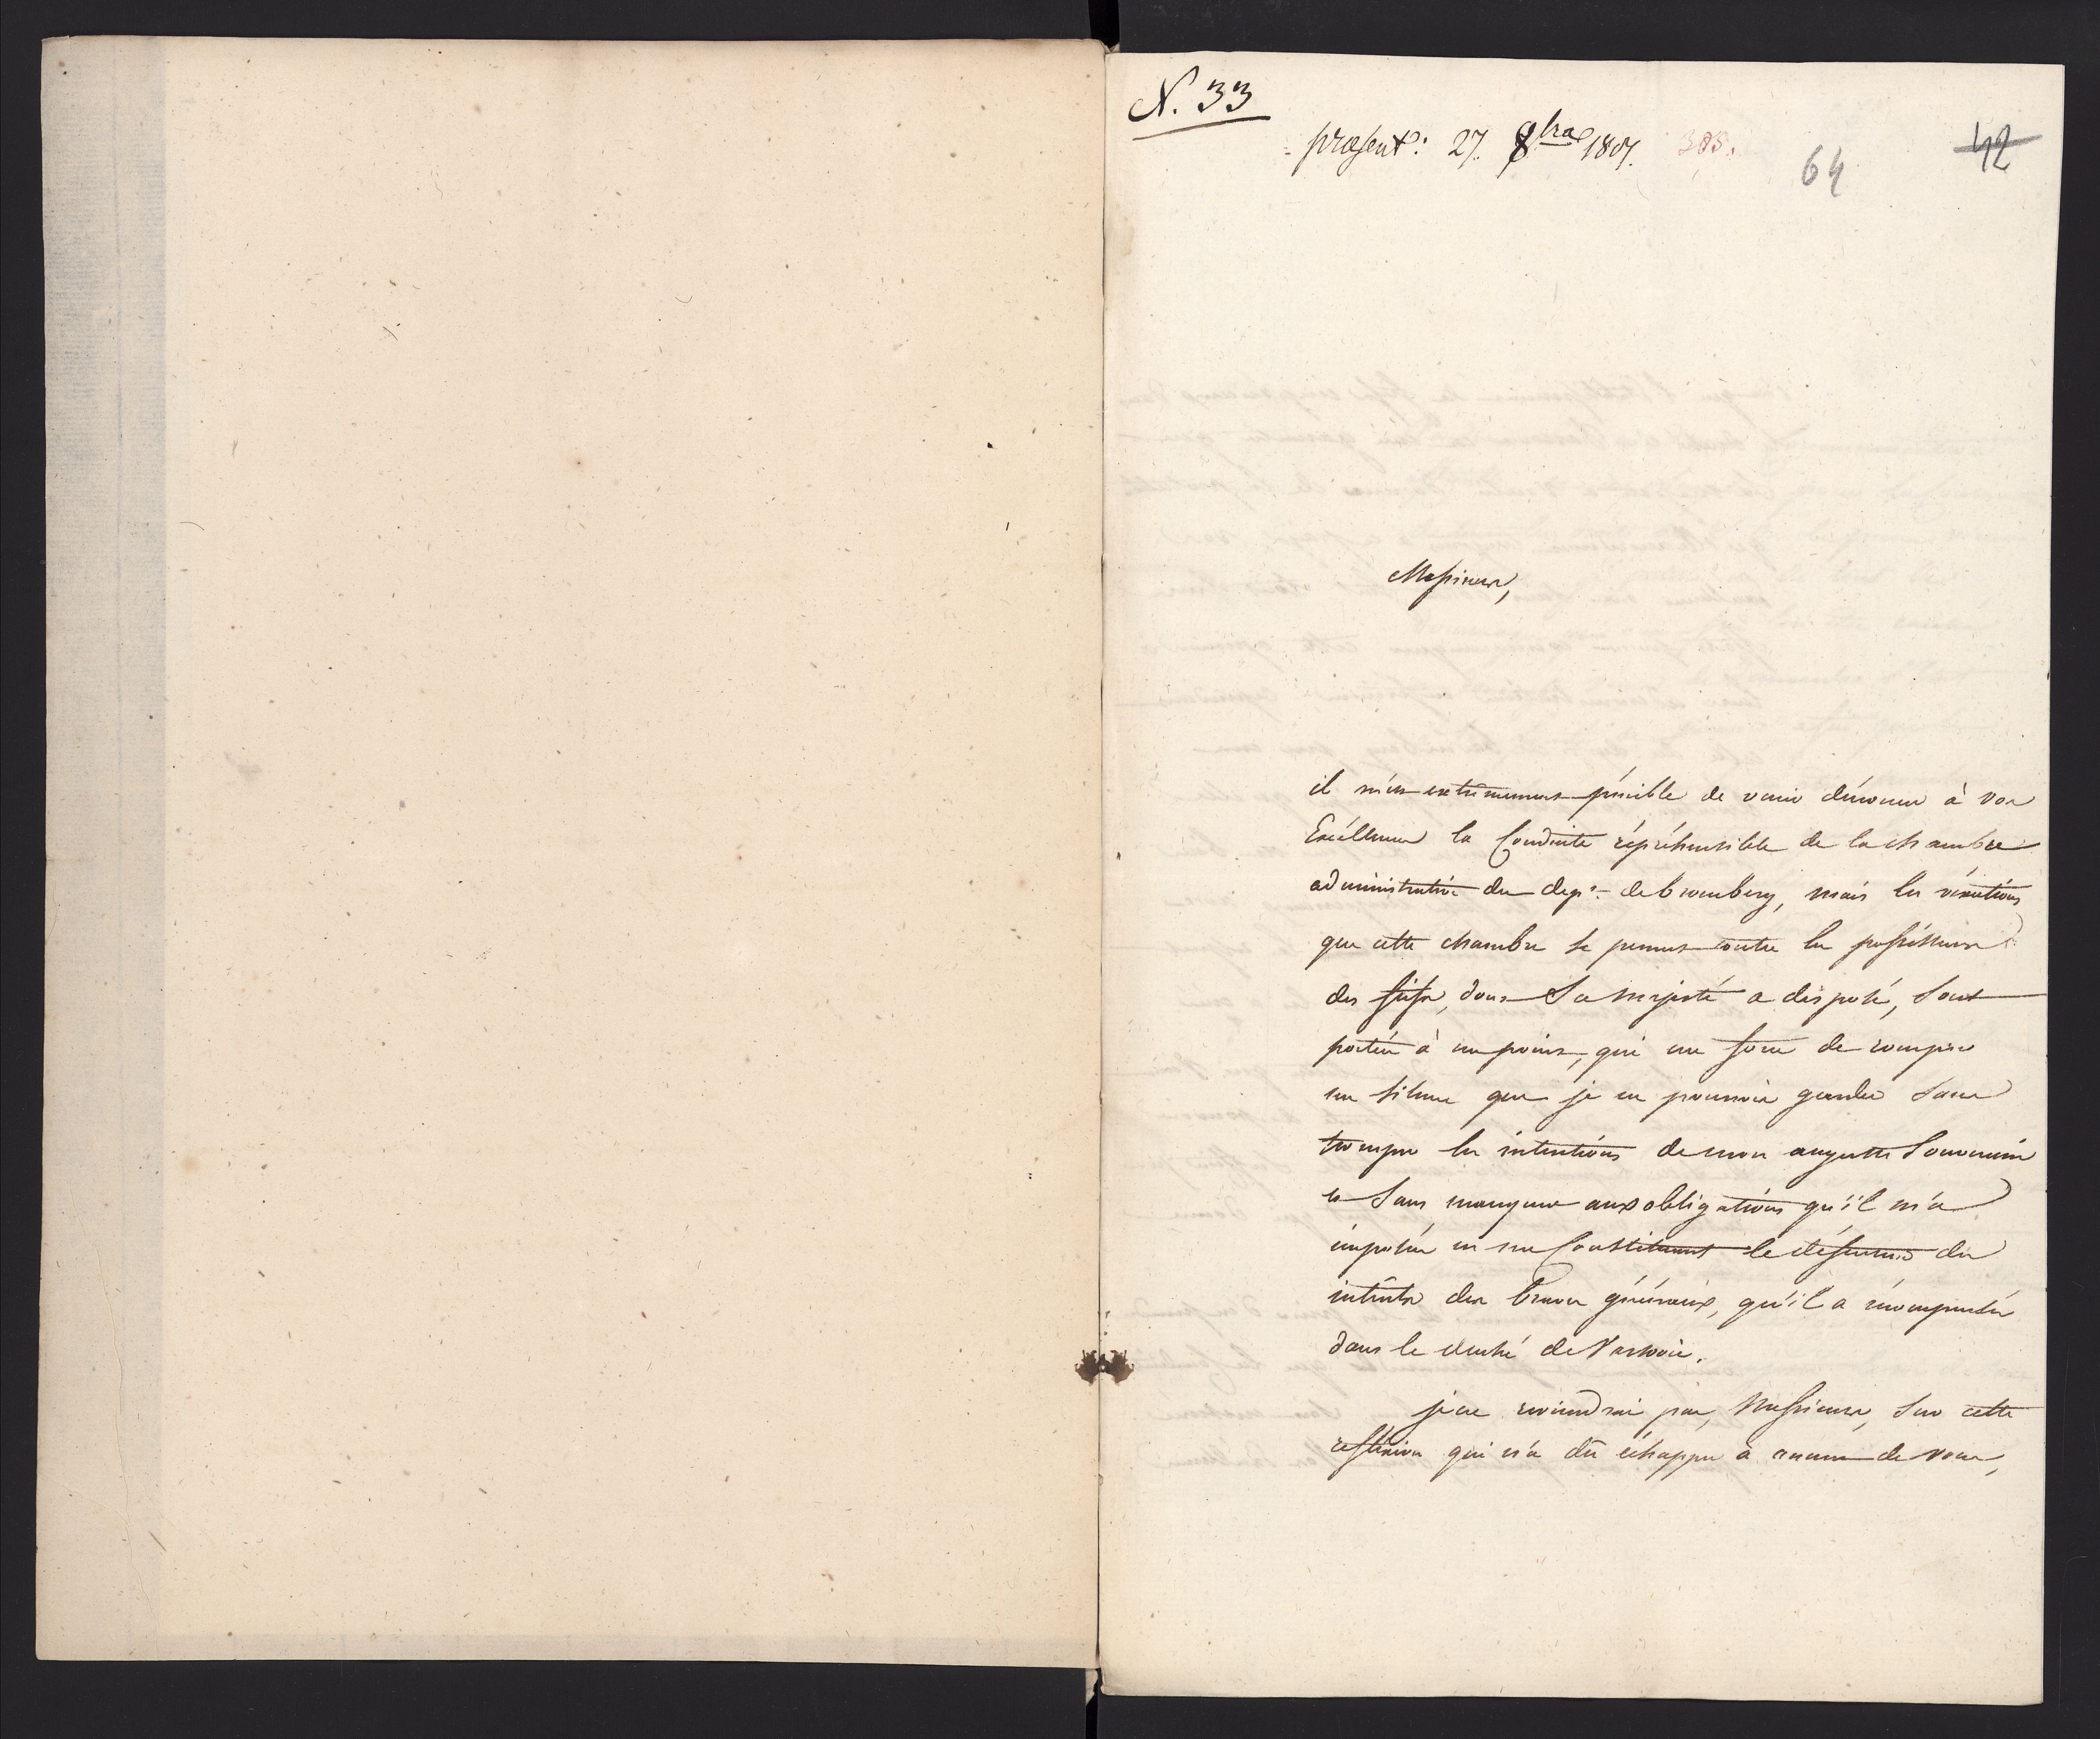 N. 33
præsent: 27. 8bre 1807. 383.
64
42
Messieurs,
il m'est extrêmement pénible de venir dénoncer à vos
Excéllences la Conduite répréhensible de la chambre
administrative du dept. de bromberg, mais les véxations
que cette chambre se permet contre les possésseurs
des fiefs, dont Sa Majesté a disposé, sont
portées à un point, qui me force de rompre
un silence que je ne pourrois garder sans
tromper les intentions de mon auguste Souverain
et sans manquer aux obligations qu'il m'a
imposées en me Constituant le défenseur des
intérêts des braves généraux, qu'il a récompensés
dans le duché de Varsovie.
je ne reviendrai pas, Messieurs, sur cette
refléxion qui n'a dû échapper à aucun de vous,